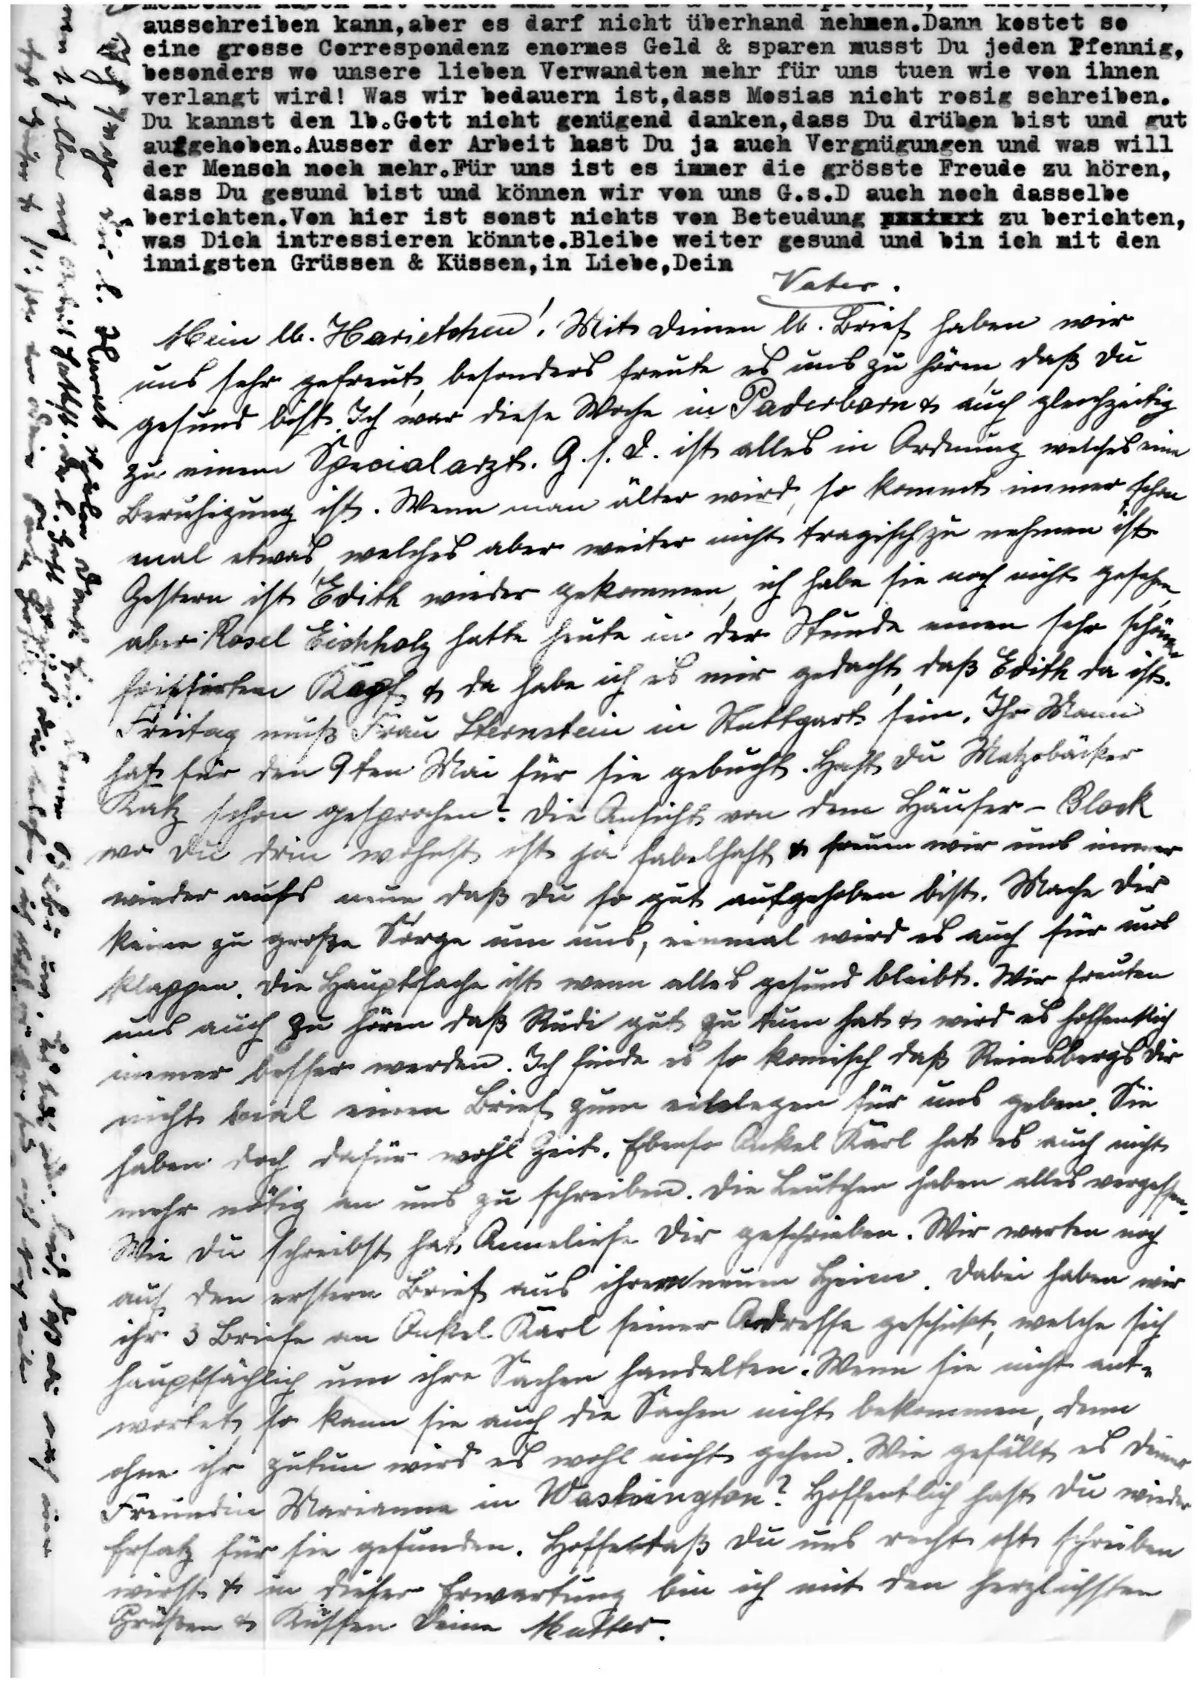 ausschreiben kann,aber es darf nicht überhand nehmen.Dann kostet so
eine grosse Correspondenz enormes Geld & sparen musst Du jeden Pfennig,
besonders wo unsere lieben Verwandten mehr für uns tuen wie von ihnen
verlangt wird! Was wir bedauern ist,dass Mosias nicht rosig schreiben.
Du kannst den lb.Gott nicht genügend danken,dass Du drüben bist und gut
aufgehoben.Ausser der Arbeit hast Du ja auch Vergnügungen und was will
der Mensch noch mehr.Für uns ist es immer die grösste Freude zu hören,
dass Du gesund bist und können wir von uns G.s.D auch noch dasselbe
berichten.Von hier ist sonst nichts von Beteudung zu berichten,
was Dich intressieren könnte.Bleibe weiter gesund und bin ich mit den
innigsten Grüssen & Küssen,in Liebe,Dein
Vater.
Mein lb. Harietchen! Mit Deinem lb. Brief haben wir
uns sehr gefreut, besonders freute es uns zu hören, daß Du
gesund bist. Ich war diese Woche in Paderborn & auch gleichzeitig
zu einem Specialarzt. G. s. D. ist alles in Ordnung welches eine
Beruhigung ist. Wenn man älter wird, so kommt immer schon
mal etwas, welches aber weiter nicht tragisch zu nehmen ist.
Gestern ist Edith wieder gekommen, ich habe sie noch nicht gesehen,
aber Rosel Eichholz hatte heute in der Stunde einen sehr schön
frisierten Kopf & da habe ich es mir gedacht, daß Edith da ist.
Freitag muß Frau Sternstein in Stuttgart sein. Ihr Mann
hat für den 9ten Mai für sie gebucht. Hast Du Matzebäcker
Katz schon gesprochen? Die Ansicht von dem Häuser-Block
wo Du drin wohnst ist ja fabelhaft & freuen wir uns immer
wieder aufs neue daß Du so gut aufgehoben bist. Mache Dir
keine zu große Sorge um uns, einmal wird es auch für uns
klappen. Die Hauptsache ist wenn alles gesund bleibt. Wir freuten
uns auch zu hören daß Rudi gut zu tun hat & wird es hoffentlich
immer besser werden. Ich finde es so komisch daß Reinsbergs Dir
nicht mal einen Brief zum einlegen für uns geben. Sie
haben doch dafür wohl Zeit. Ebenso Onkel Karl hat es auch nicht
mehr nötig an uns zu schreiben. Die Leutchen haben alles vergessen.
Wie Du schreibst hat Anneliese Dir geschrieben. Wir warten noch
auf den erstern Brief aus ihrem neuen Heim. Dabei haben wir
ihr 3 Briefe an Onkel Karl seiner Adresse geschickt, welche sich
hauptsächlich um ihre Sachen handelten. Wenn sie nicht ant-
wortet, so kann sie auch die Sachen nicht bekommen, denn
ohne ihr zutun wird es wohl nicht gehen. Wie gefällt es Deiner
Freundin Marianne in Washington? Hoffentlich hast Du wieder
Ersatz für sie gefunden. Hoffe daß Du uns recht oft schreiben
wirst & in dieser Erwartung bin ich mit den herzlichsten
Grüßen & Küssen Deine Mutter.